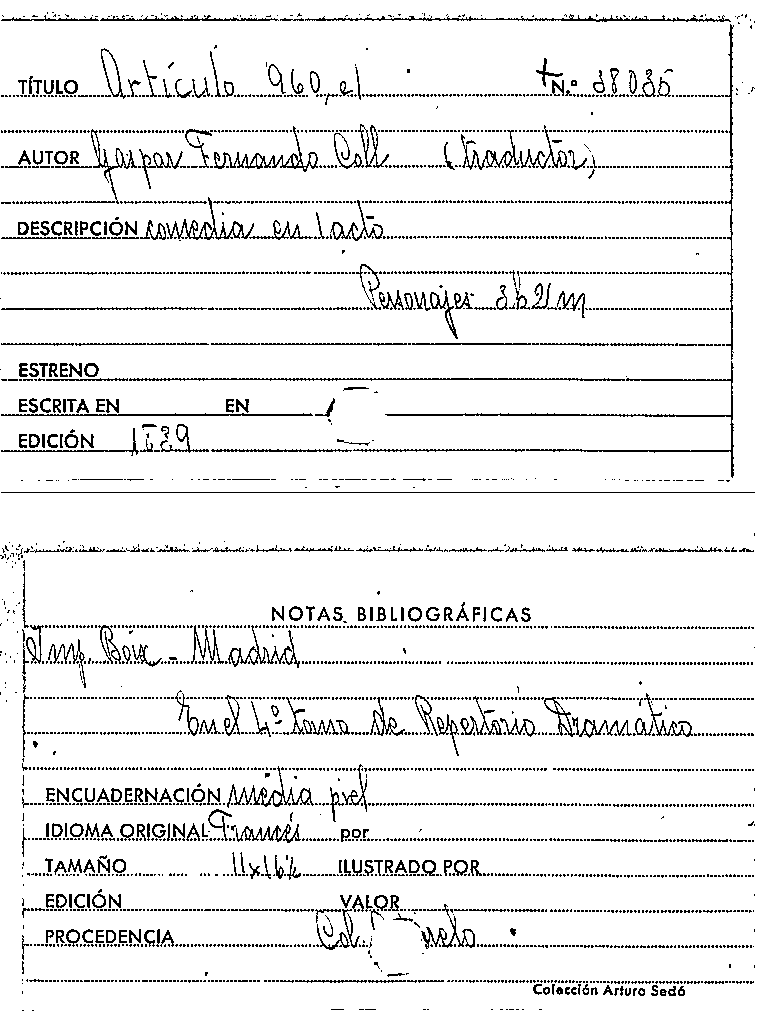 TÍTULO Artículo 960, el N.º 38035
AUTOR Gaspar Fernando Coll (traductor)
DESCRIPCIÓN comedia en 1 acto
Personajes 3h 2m
ESTRENO
ESCRITA EN EN
EDICIÓN 1839
NOTAS BIBLIOGRÁFICAS
Imp. Boix - Madrid
En el 4º tomo de Repertorio Dramático
ENCUADERNACIÓN media piel
IDIOMA ORIGINAL Francés por
TAMAÑO 11x16½ ILUSTRADO POR
EDICIÓN VALOR
PROCEDENCIA Col.
Colección Arturo Sedó